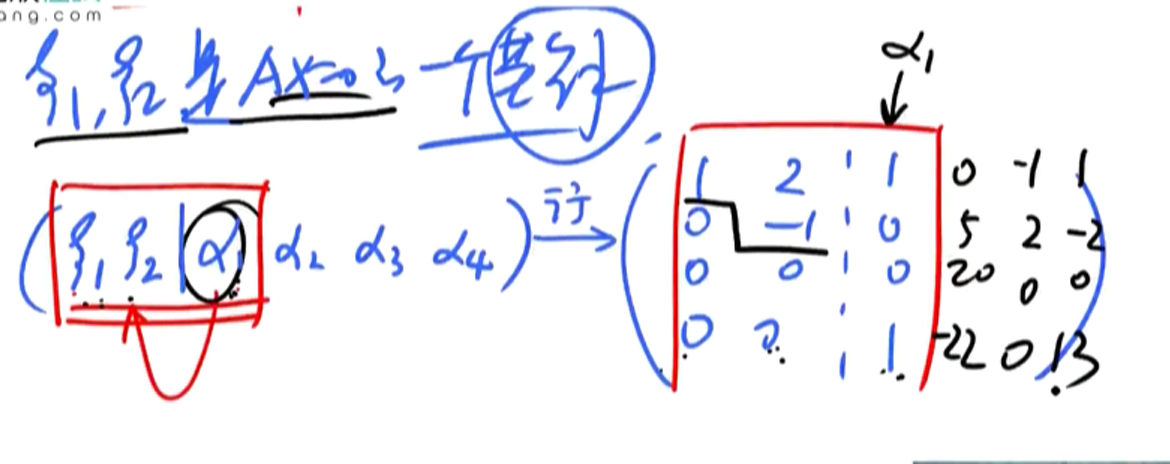 ang.com
ξ₁, ξ₂ 是 AX=0 的 一个基础
α₁
(ξ₁ ξ₂ | α₁ α₂ α₃ α₄) 行→
1 2 1 0 -1 1
0 -1 0 5 2 -2
0 0 0 20 0 0
0 0 1 -22 0 13